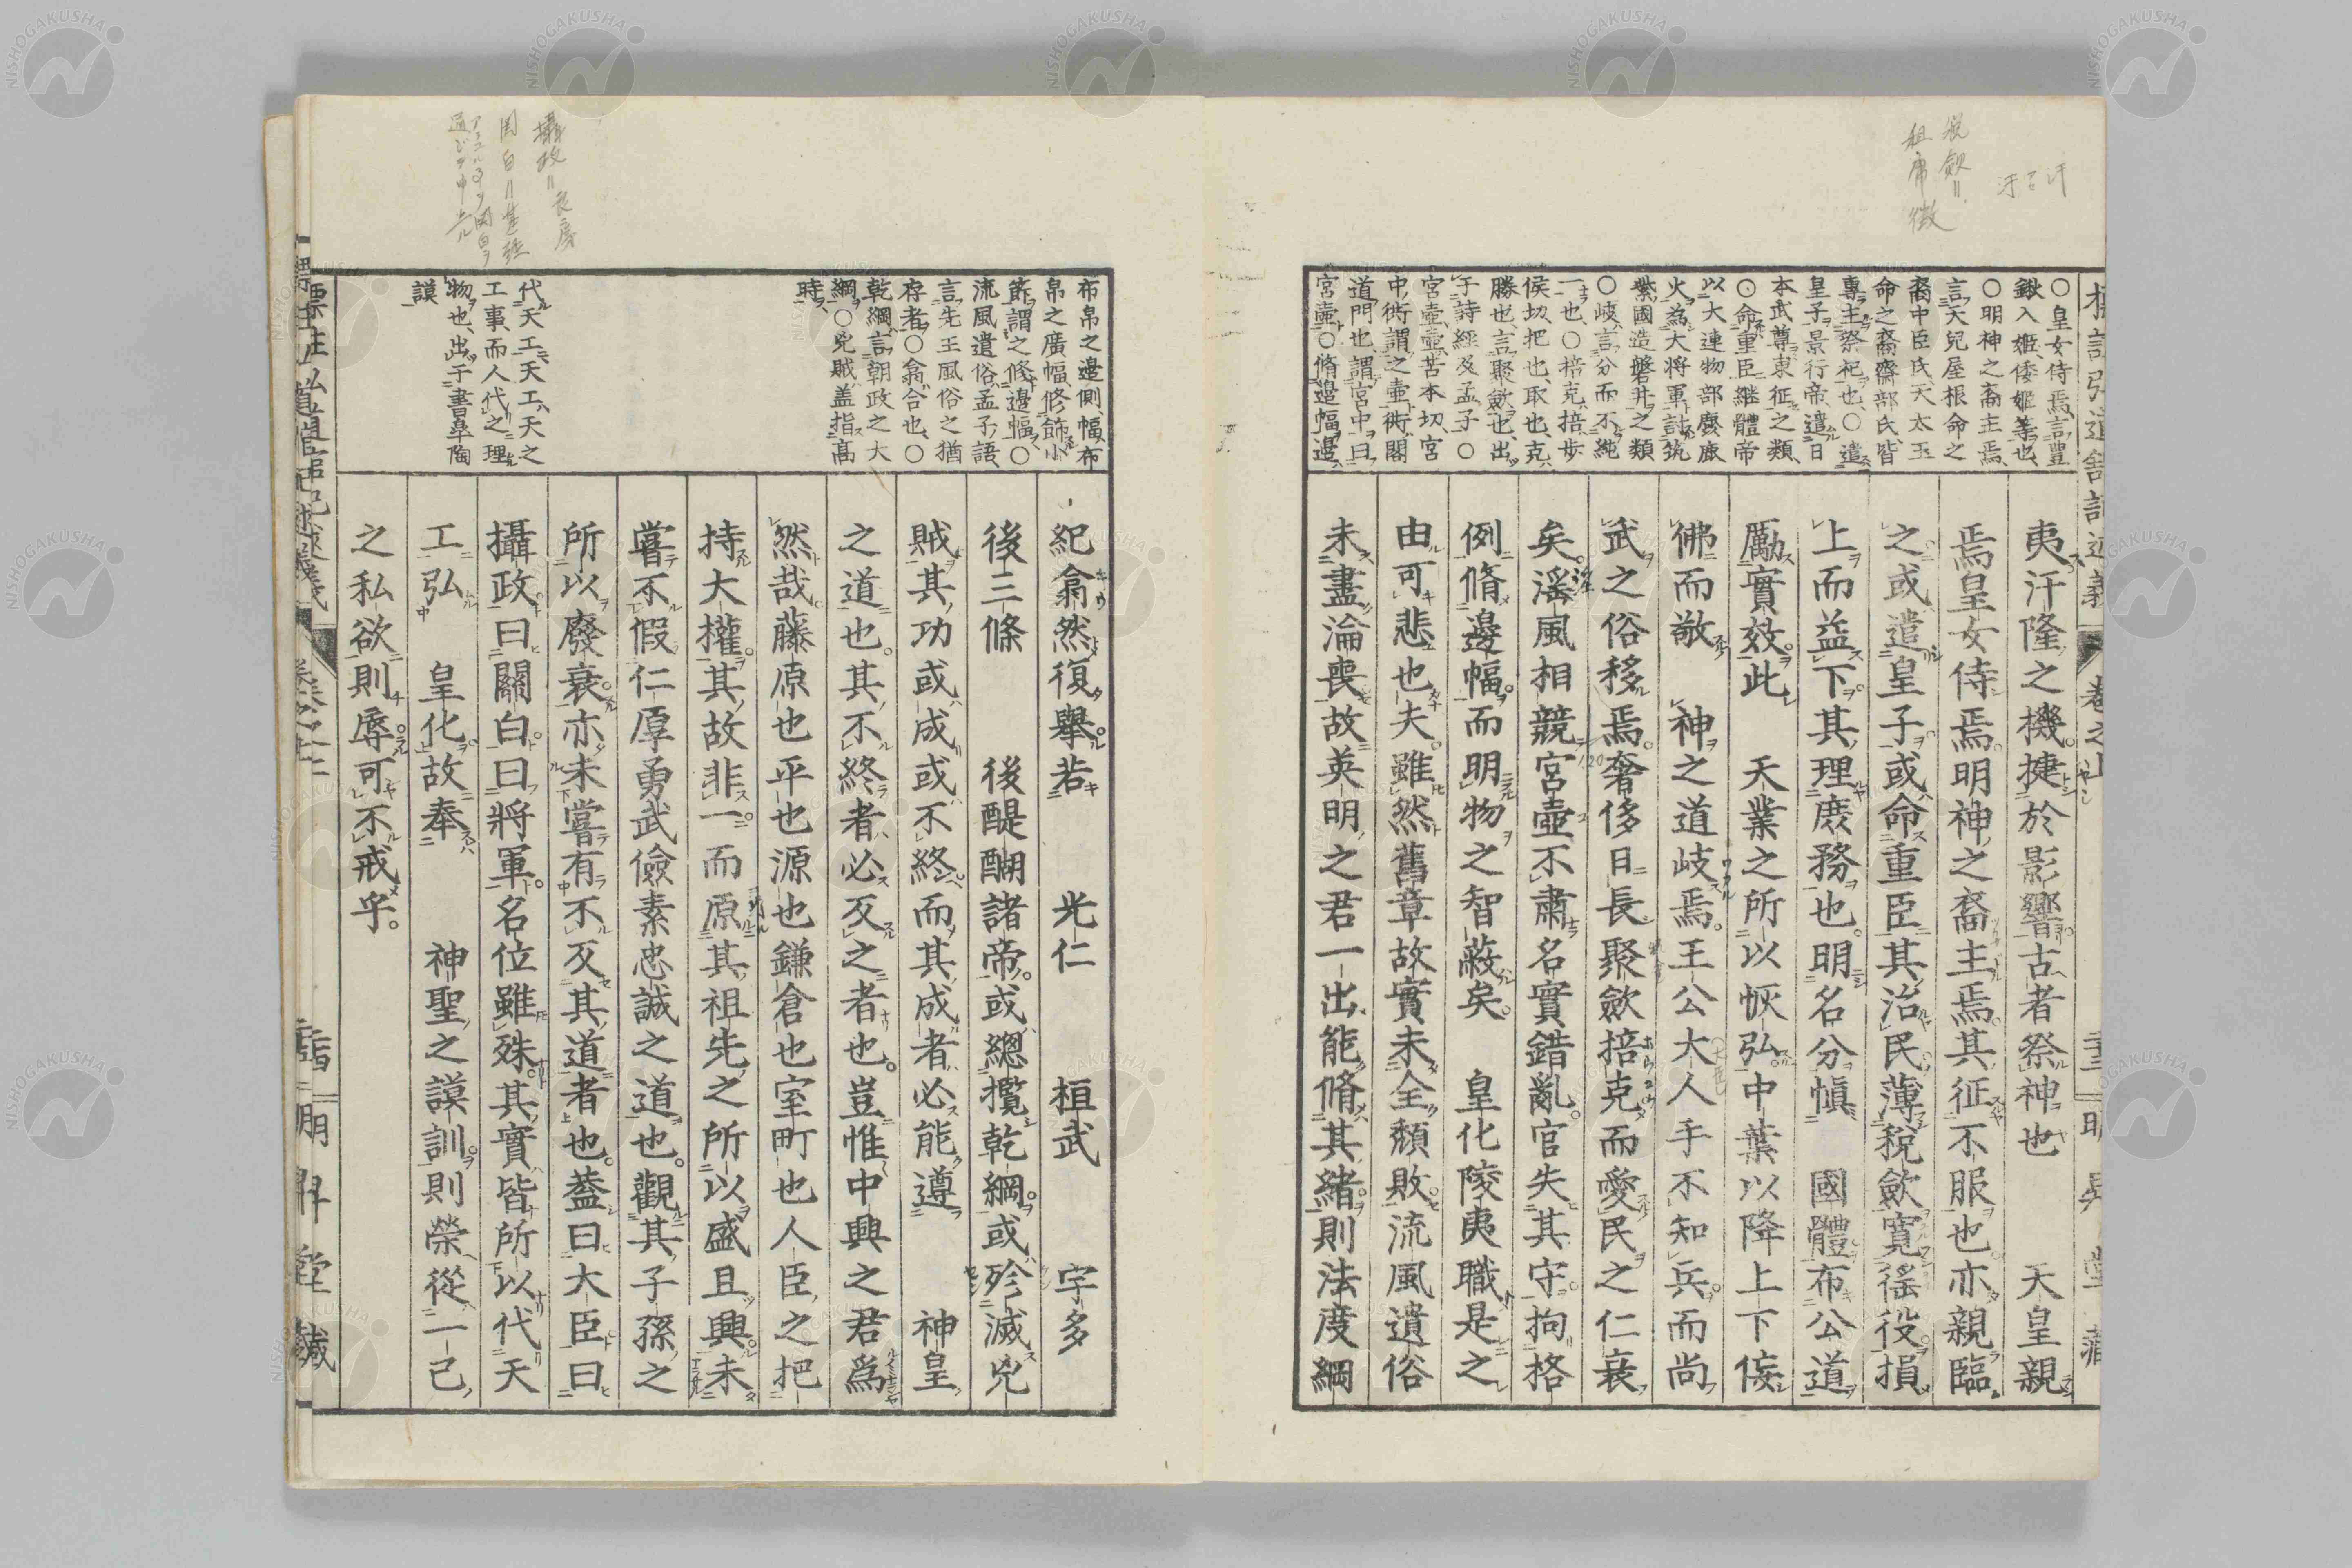 夷汙隆之機捷於影響古者祭神也　天皇親
焉皇女侍焉明神之裔主焉其征不服也亦親臨
之或遣皇子或命重臣其治民薄稅斂寬徭役損
上而益下其理庶務也明名分愼　國體布公道
勵實效此　天業之所以恢弘中葉以降上下佞
佛而敬　神之道岐焉王公大人手不知兵而尚
武之俗移焉奢侈日長聚斂掊克而愛民之仁衰
矣滛風相競宮壼不肅名實錯亂官失其守拘格
例脩邊幅而明物之智蔽矣　皇化陵夷職是之
由可悲也夫雖然舊章故實未全頹敗流風遺俗
未盡淪喪故英明之君一出能脩其緒則法度綱
○皇女侍焉、言豐
鍬入姬、倭姬等也、
○明神之裔主焉、
言天兒屋根命之
裔中臣氏、天太玉
命之裔齋部氏、皆
專主祭祀也、○遣
皇子、景行帝、遣日
本武尊東征之類、
○命重臣、繼體帝
以大連物部麤鹿
火為大將軍討筑
紫國造磐井之類
○岐、言分而不純
一也、○掊克、掊、步
侯切、把也、取也、克
勝也、言聚斂也、出
于詩經及孟子、○
宮壼、壼、苦本切、宮
中衖、謂之壼、衖、閤
道門也、謂宮中曰
宮壼、○脩邊幅、邊
稅斂=
租庸徵
汙又汗
標記弘道館記述義　卷之上
紀翕然復舉若　光仁　桓武　宇多
後三條　後醍醐諸帝或總攬乾綱或殄滅兇
賊其功或成或不終而其成者必能遵　神皇
之道也其不終者必反之者也豈惟中興之君爲
然哉藤原也平也源也鎌倉也室町也人臣之把
持大權其故非一而原其祖先之所以盛且興未
嘗不假仁厚勇武儉素忠誠之道也觀其子孫之
所以廢衰亦未嘗有不反其道者也蓋曰大臣曰
攝政曰關白曰將軍名位雖殊其實皆所以代天
工弘　皇化故奉　神聖之謨訓則榮從一己
之私欲則辱可不戒乎
布帛之邊側、幅、布
帛之廣幅、修飾小
節、謂之修邊幅、○
流風遺俗、孟子語、
言先王風俗之猶
存者○翕、合也、○
乾綱、言朝政之大
綱、○兇賊、盖指高
時、
代天工、天工、天之
工事、而人代之理
物也、出于書皐陶
謨
攝政=良房
関白=基経